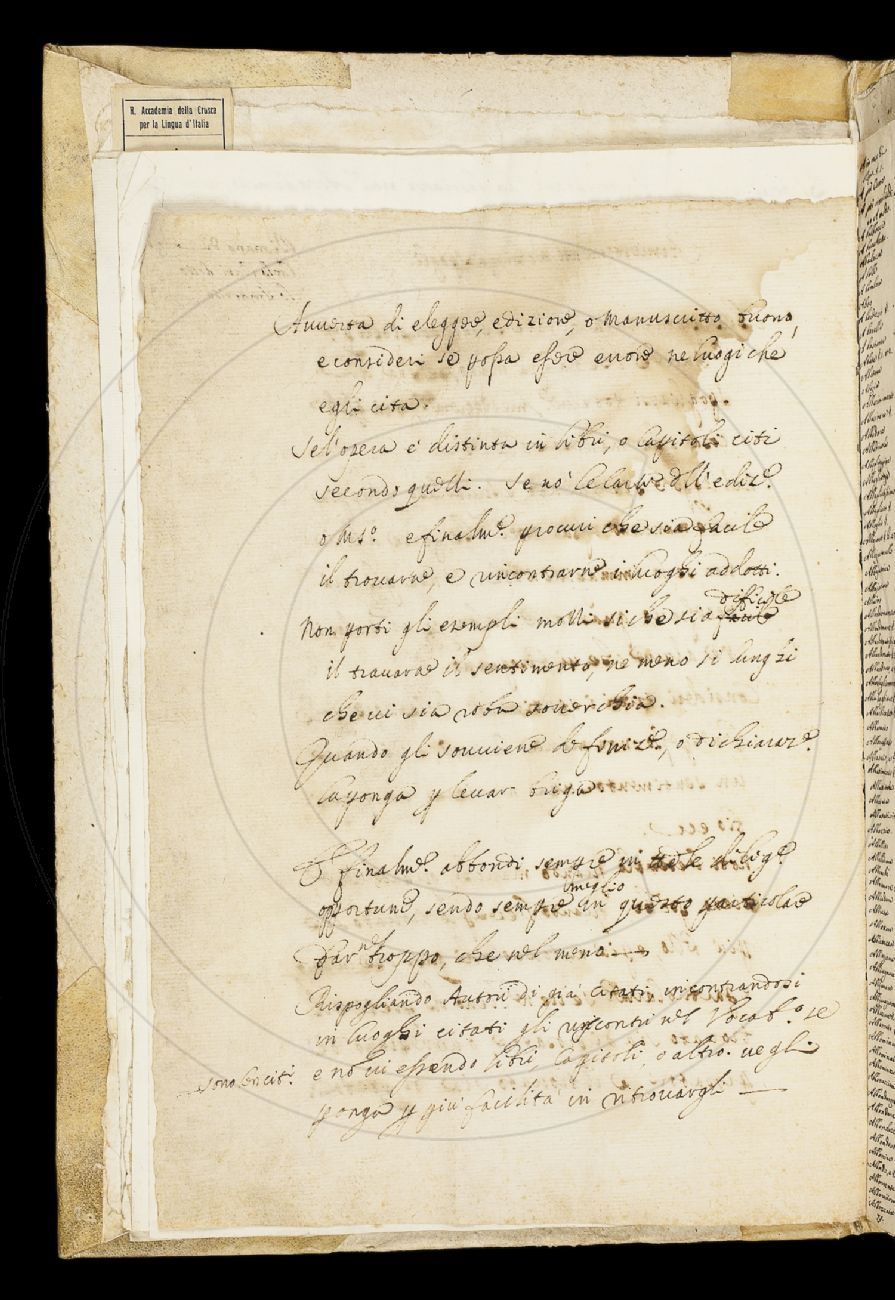 R. Accademia della Crusca
per la Lingua d'Italia
Auuerta di eleggere, edizione, o manuscritto buono,
e consideri se possa essere errore ne luoghi che
egli cita.
Se l'opera è distinta in libri, o Capitoli citi
secondo quelli. Se nò le carte dll' ediz.e
o Ms.o e finalm.e procuri che sia facile
il trouarne, e rincontrarne i luoghi addotti.
Non porti gli esempli molti si che sia facile difficile
il trauarae il sentimento, ne meno si lunghi
che ui sia roba souerchia.
Quando gli souuiene defìniz.e, o dichiaraz.e
la ponga p leuar briga
E finalm.e abbondi sempre in tutte le dilig.e
opportune, sendo sempre meglio in questo particolare
dar nel troppo, che nel meno
Rispogliando Autori di già citati incontrandosi
in luoghi citati gli riscontri nel Vocab.o se
sono ben cit.i e nō ui essendo libri, Capitoli, o altro. ue gli
ponga p più facilità in ritrouargli